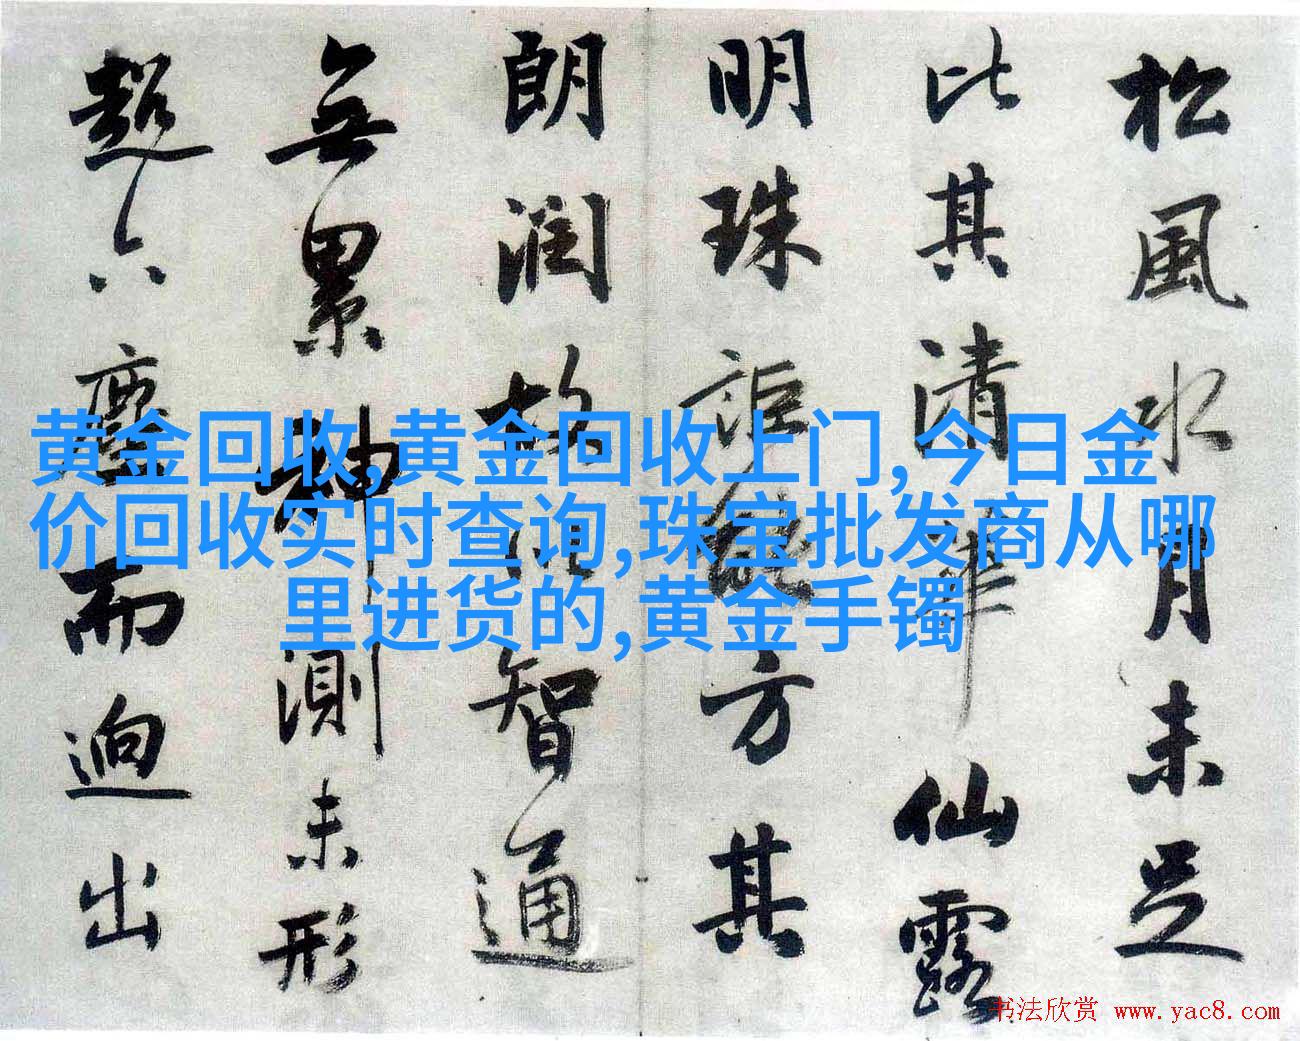 松風水月未足
比其清華仙露
明珠詎能方其
朗潤故以智通
無累神測未形
超六塵而迥出
黄金回收,黄金回收上门,今日金
价回收实时查询,珠宝批发商从哪
里进货的,黄金手镯
书法欣赏 www.yac8.com